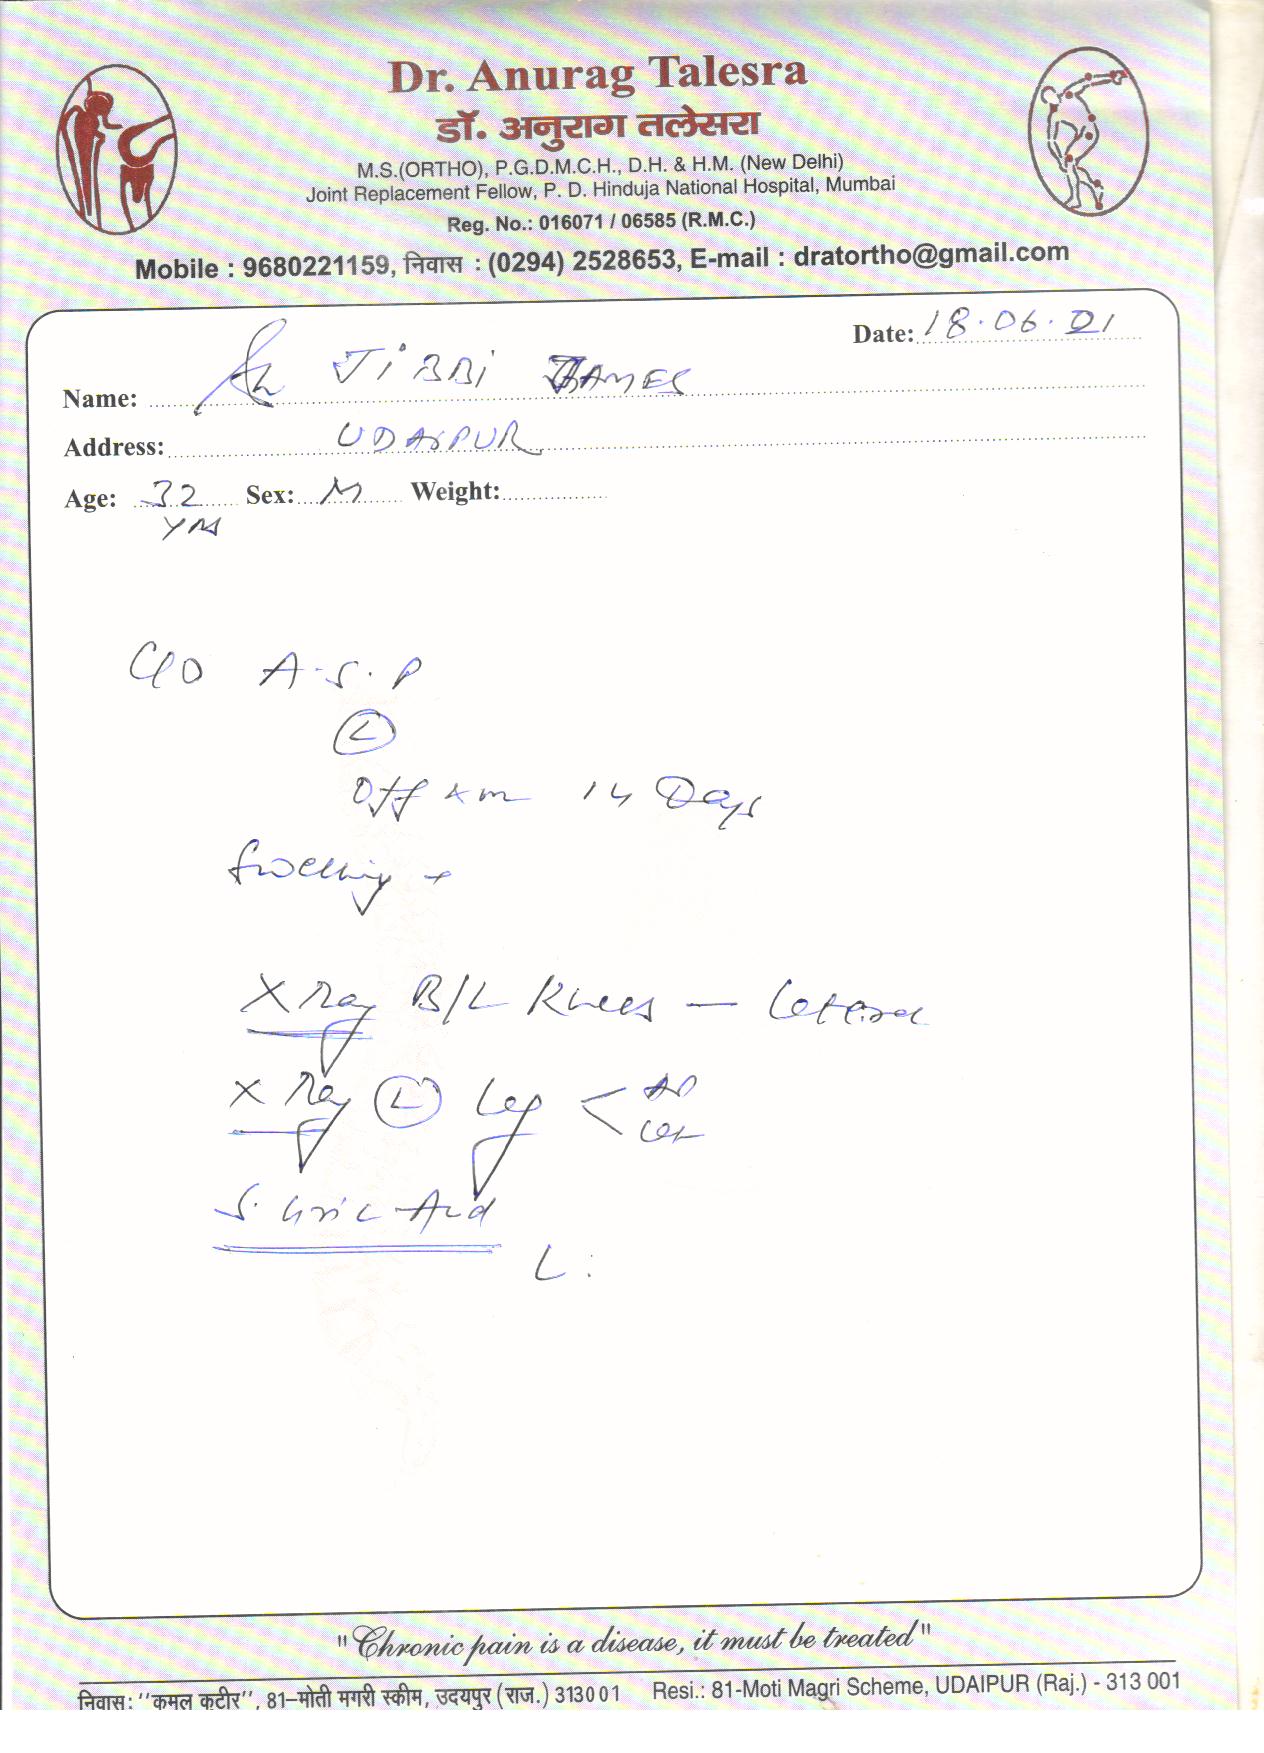 Dr. Anurag Talesra
डॉ. अनुराग तलेसरा
M.S.(ORTHO), P.G.D.M.C.H., D.H. & H.M. (New Delhi)
Joint Replacement Fellow, P. D. Hinduja National Hospital, Mumbai
Reg. No.: 016071 / 06585 (R.M.C.)
Mobile : 9680221159, निवास : (0294) 2528653, E-mail : dratortho@gmail.com
Date: 18.06.21
Name: JiBBi JAMES
Address: UDAIPUR
Age: 32 Sex: M Weight:
C/O A.S.P
L
Off 14 Days
Swelling +
X Ray B/L Knees – Lateral
X Ray L Leg < AP
Lat
S. Uric Acid
L :
"Chronic pain is a disease, it must be treated"
निवास: ''कमल कटीर'', 81–मोती मगरी स्कीम, उदयपुर (राज.) 313001 Resi.: 81-Moti Magri Scheme, UDAIPUR (Raj.) - 313 001